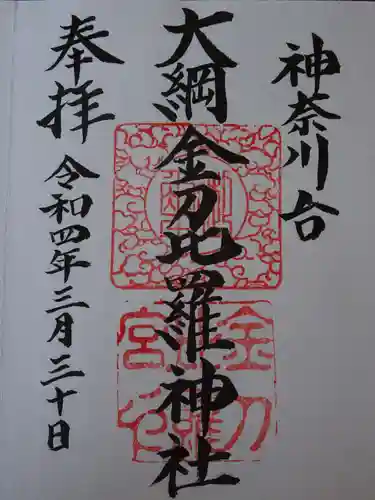 神奈川台
大綱金刀比羅神社
奉拝
令和四年三月三十日